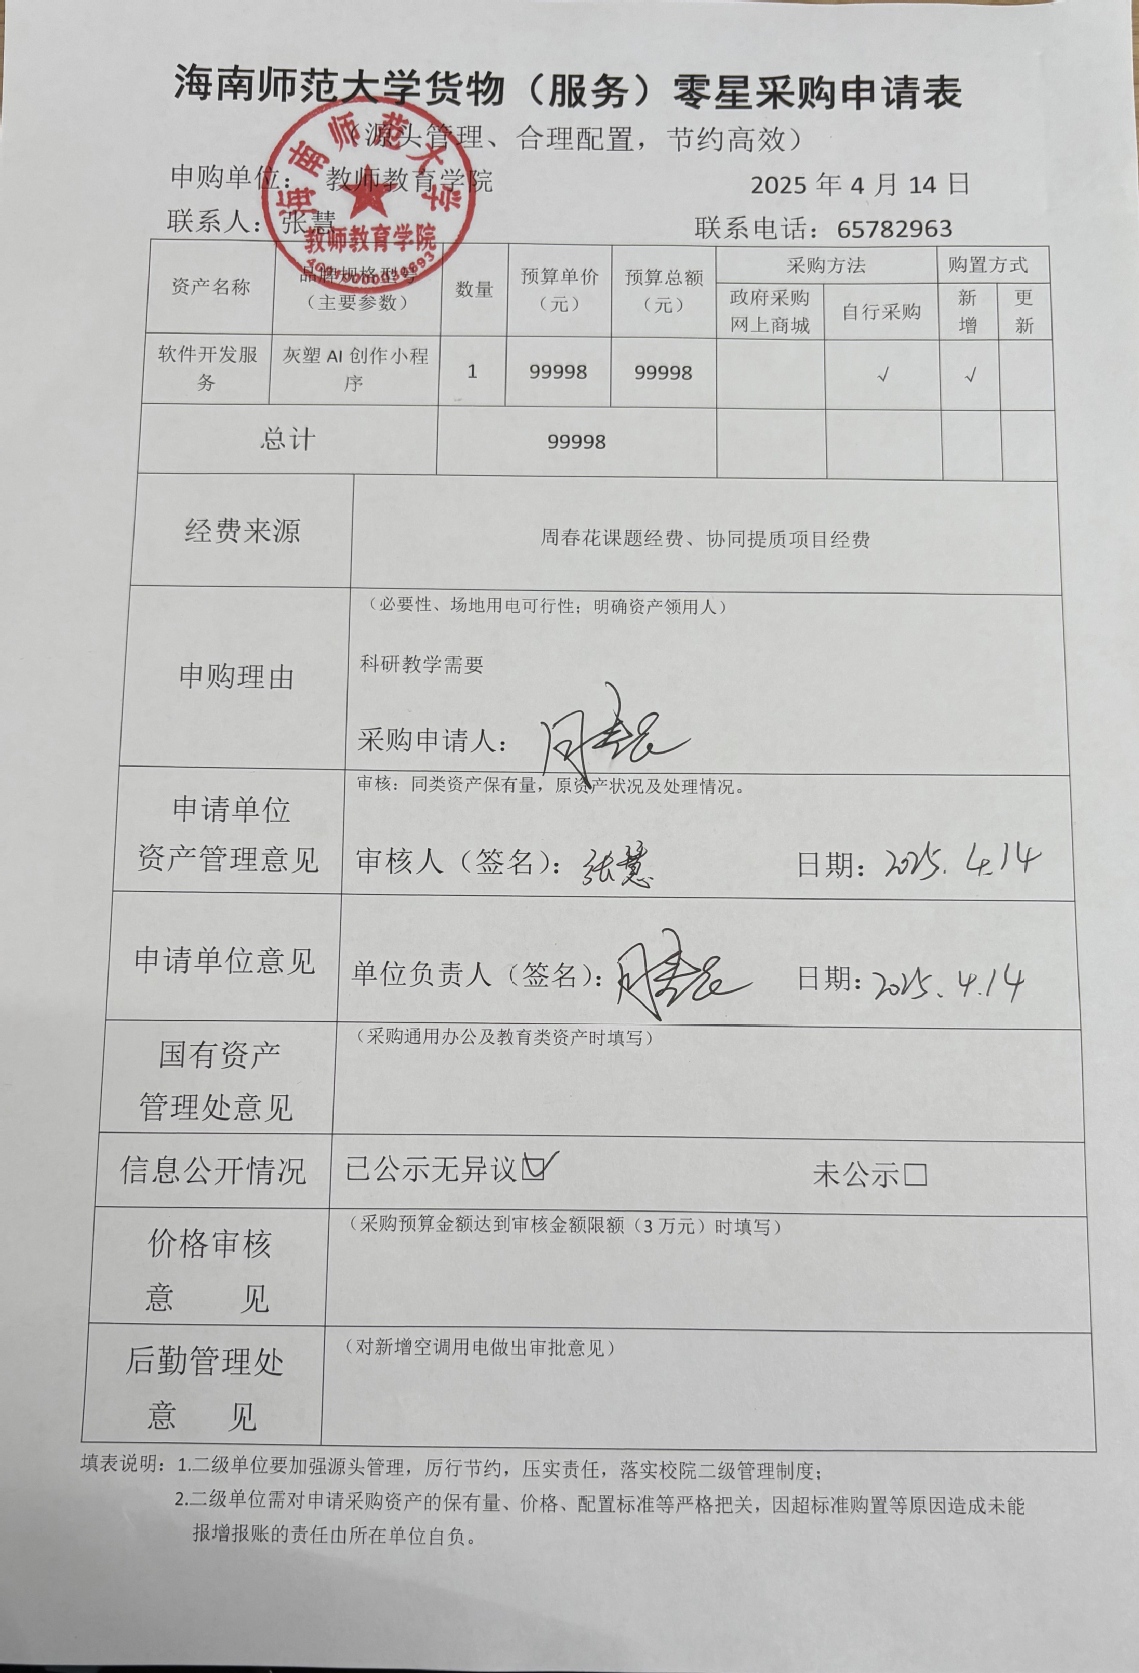 海南师范大学货物（服务）零星采购申请表
（源头管理、合理配置，节约高效）
申购单位： 教师教育学院
2025 年 4 月 14 日
联系人：张慧
联系电话：65782963
海南师范大学
教师教育学院
资产名称
品牌规格型号
（主要参数）
数量
预算单价
（元）
预算总额
（元）
采购方法
购置方式
政府采购
网上商城
自行采购
新
增
更
新
软件开发服
务
灰塑 AI 创作小程
序
1
99998
99998
√
√
总计
99998
经费来源
周春花课题经费、协同提质项目经费
申购理由
（必要性、场地用电可行性；明确资产领用人）
科研教学需要
采购申请人：周春花
申请单位
资产管理意见
审核：同类资产保有量，原资产状况及处理情况。
审核人（签名）：张慧
日期：2025.4.14
申请单位意见
单位负责人（签名）：周春花
日期：2025.4.14
国有资产
管理处意见
（采购通用办公及教育类资产时填写）
信息公开情况
已公示无异议☑
未公示□
价格审核
意 见
（采购预算金额达到审核金额限额（3 万元）时填写）
后勤管理处
意 见
（对新增空调用电做出审批意见）
填表说明：1.二级单位要加强源头管理，厉行节约，压实责任，落实校院二级管理制度；
2.二级单位需对申请采购资产的保有量、价格、配置标准等严格把关，因超标准购置等原因造成未能
报增报账的责任由所在单位自负。